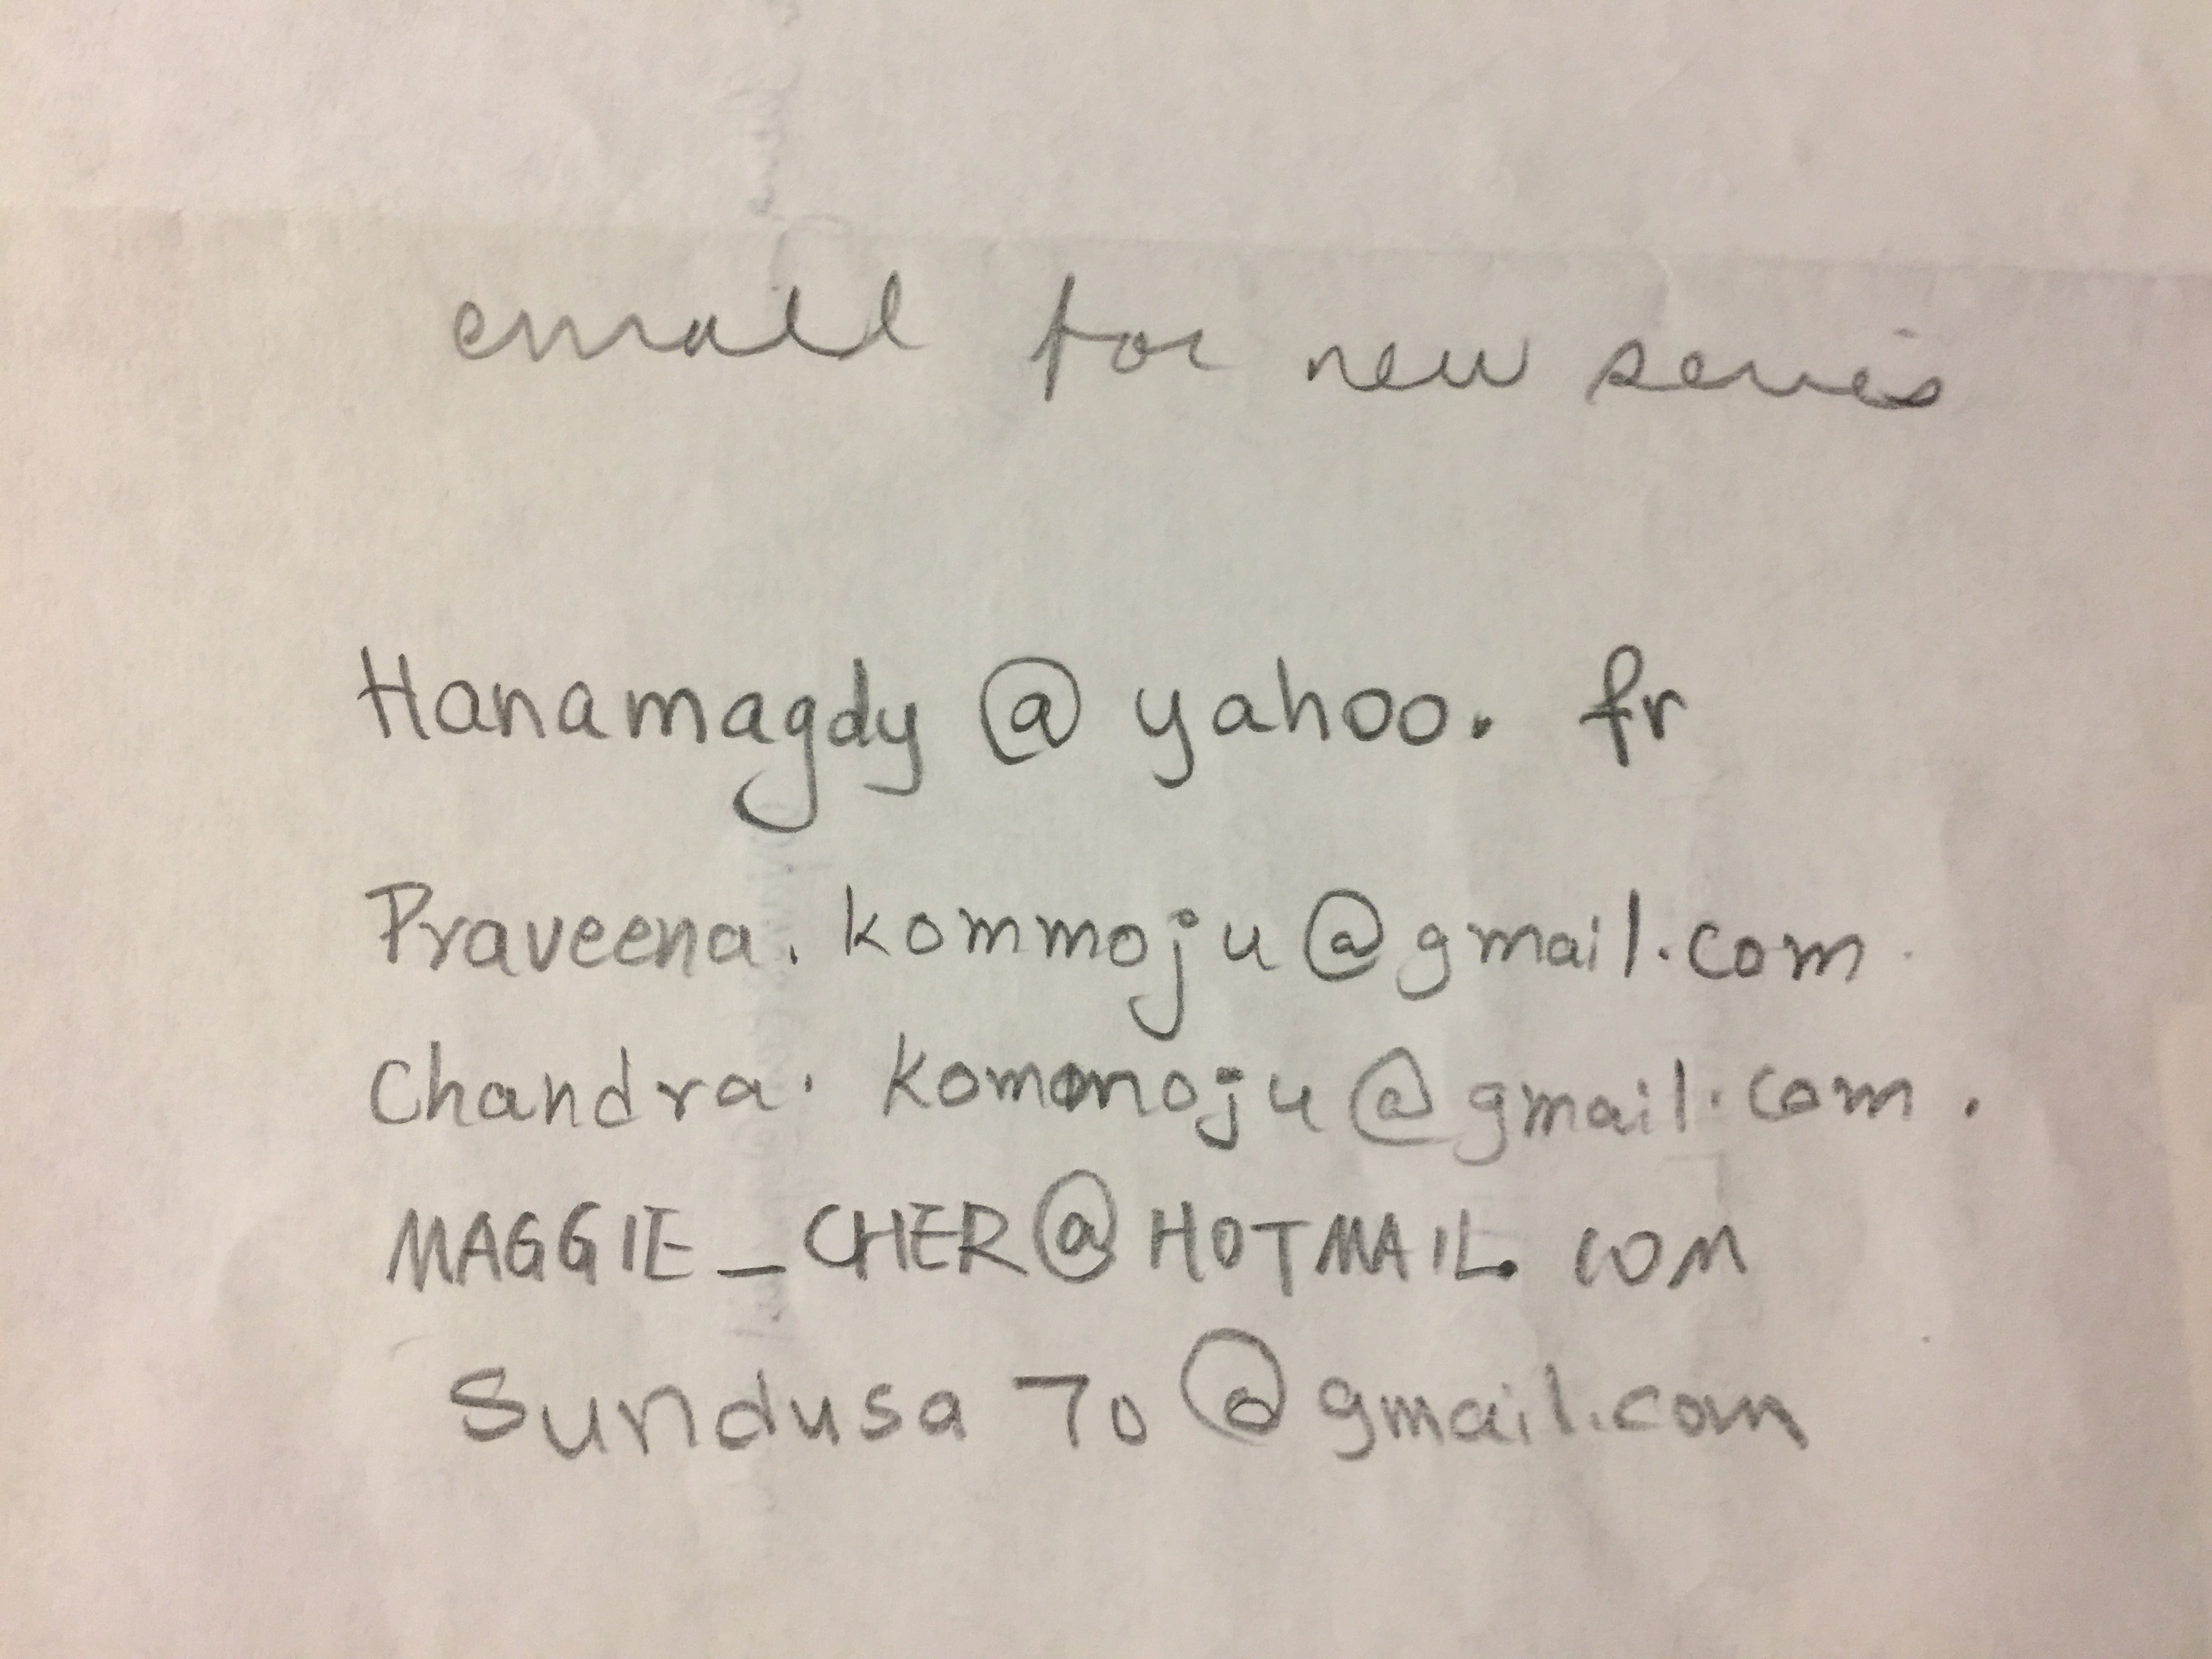 email for new series
Hanamagdy @ yahoo. fr
Praveena. kommoju@gmail.com
Chandra. komomoju@gmail.com.
MAGGIE_CHER@HOTMAIL. COM
Sundusa 70 @gmail.com